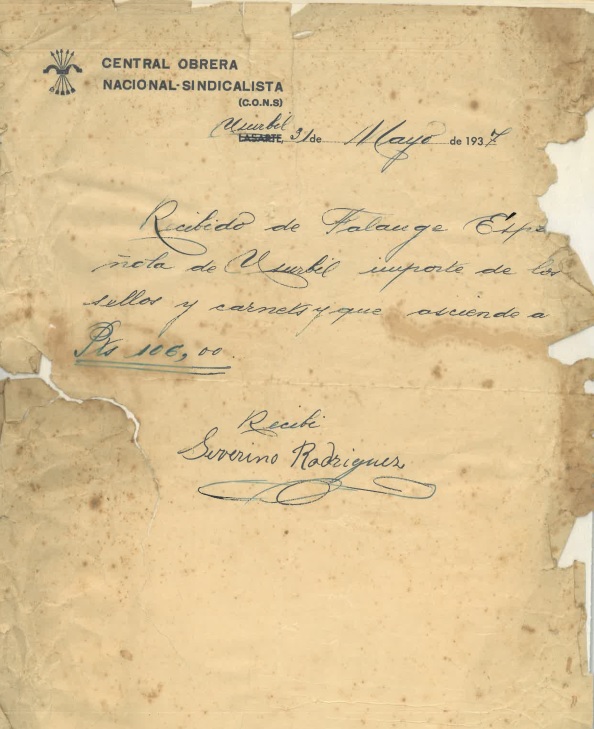 CENTRAL OBRERA
NACIONAL-SINDICALISTA
(C.O.N.S)
Usurbil
LASARTE, 31 de Mayo de 1937
Recibido de Falange Espa
ñola de Usurbil importe de los
sellos y carnets y que asciende a
Pts 106,00.
Recibi
Severino Rodriguez